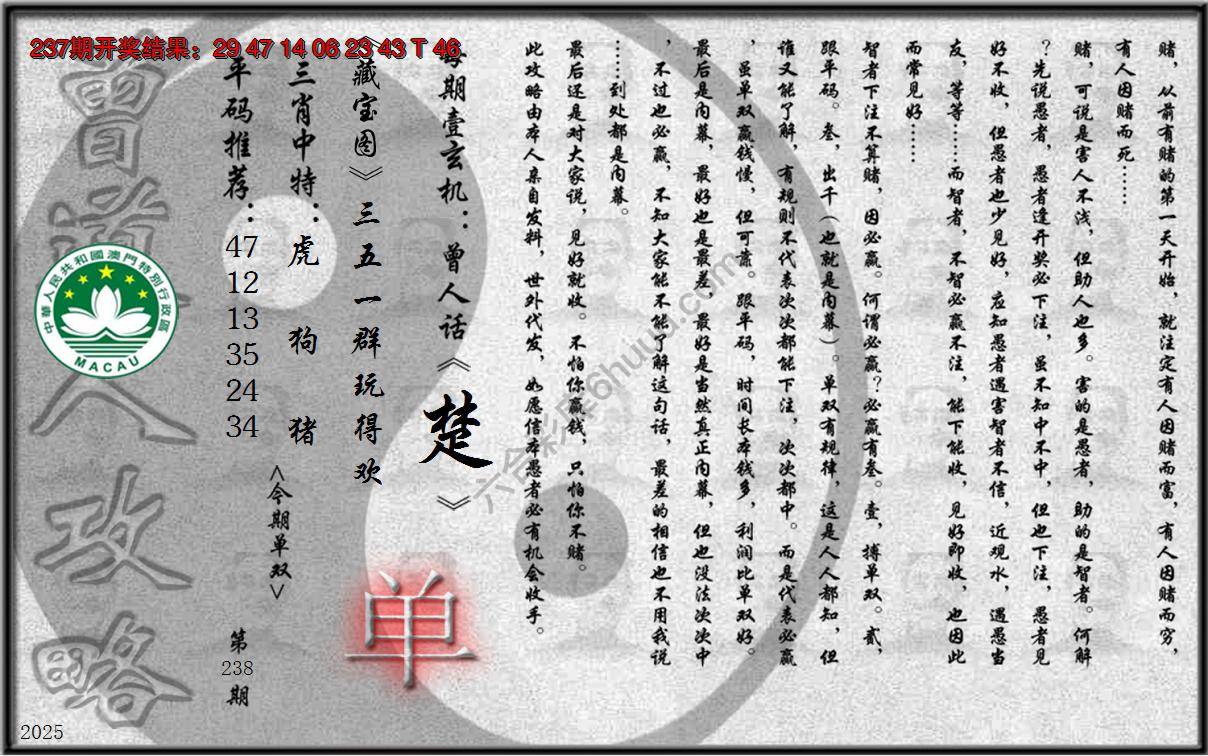 237期开奖结果：29 47 14 06 23 43 T 46
赌，从前有赌的第一天开始，就注定有人因赌而富，有人因赌而穷，
有人因赌而死……
赌，可说是害人不浅，但助人也多。害的是愚者，助的是智者。何解
？先说愚者，愚者逢开奖必下注，虽不知中不中，但也下注，愚者见
好不收，但愚者也少见好，应知愚者遇害智者不信，近观水，遇愚当
友，等等……而智者，不智必赢不注，能下能收，见好即收，也因此
而常见好……
智者下注不算赌，因必赢。何谓必赢？必赢有叁。壹，搏单双。贰，
跟平码。叁，出千（也就是内幕）。单双有规律，这是人人都知，但
谁又能了解，有规则不代表次次都能下注，次次都中。而是代表必赢
，虽单双赢钱慢，但可靠。跟平码，时间长本钱多，利润比单双好。
最后是内幕，最好也是最差，最好是当然真正内幕，但也没法次次中
，不过也必赢，不知大家能不能了解这句话，最差的相信也不用我说
……到处都是内幕。
最后还是对大家说，见好就收。不怕你赢钱，只怕你不赌。
此攻略由本人亲自发料，世外代发，如愿信本愚者必有机会收手。
每期壹玄机：曾人话《楚》
《藏宝图》三五一群玩得欢
三肖中特：虎 狗 猪
平码推荐：47 12 13 35 24 34
<今期单双>
单
第238期
曾道人攻略
中華人民共和國澳門特別行政區
MACAU
2025